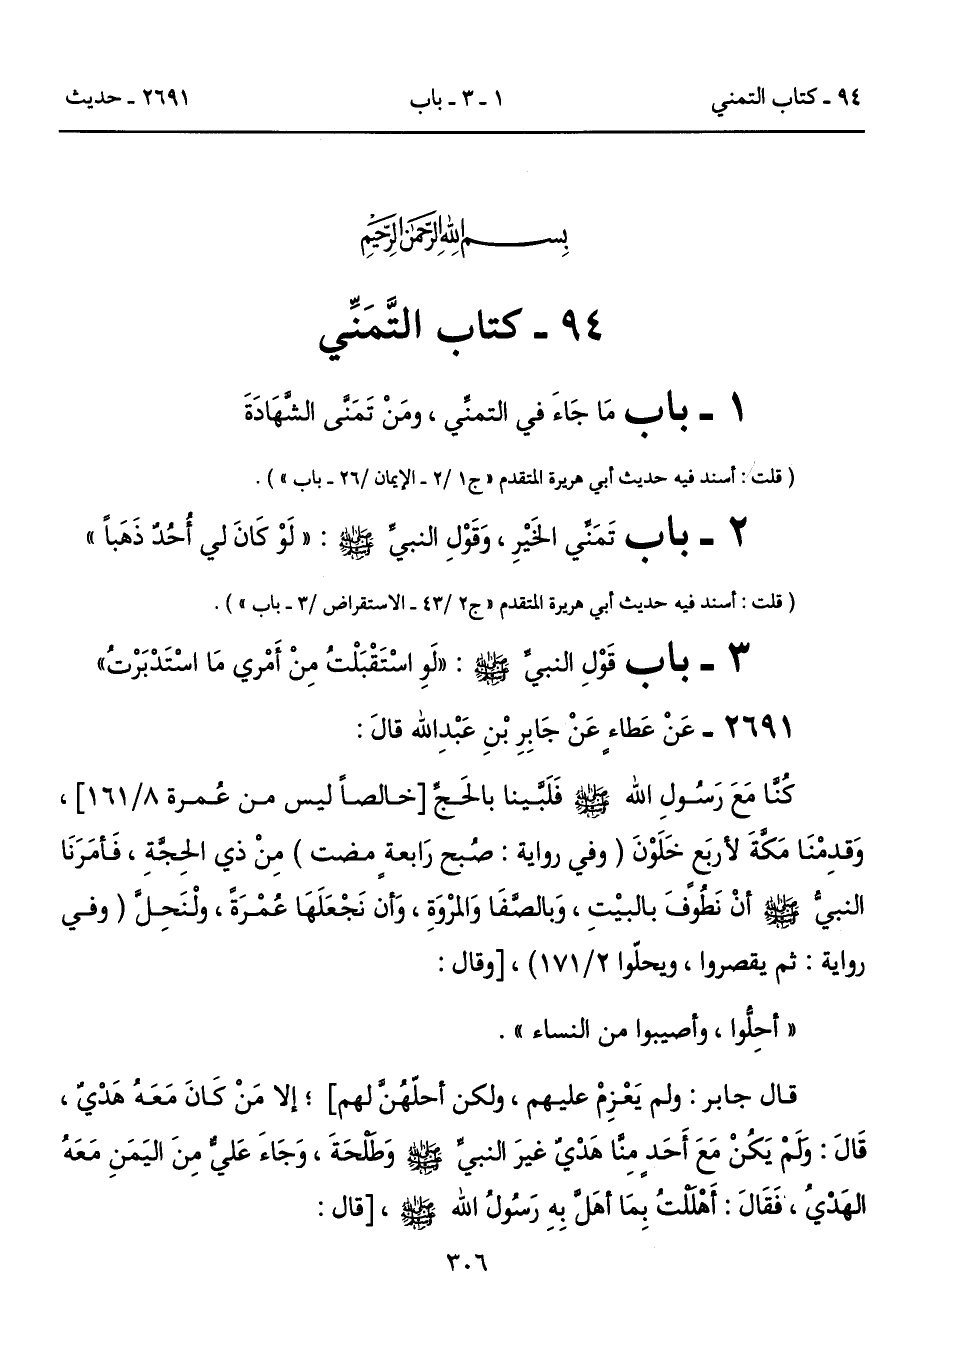 ٩٤ ـ كتاب التمني ١ ـ ٣ ـ باب ٢٦٩١ ـ حديث
بسم الله الرحمن الرحيم
٩٤ ـ كتاب التَّمَنِّي
١ ـ باب مَا جَاءَ في التمنِّي ، ومَنْ تَمَنَّى الشَّهَادَةَ
( قلت : أسند فيه حديث أبي هريرة المتقدم « ج١ /٢ ـ الإيمان /٢٦ ـ باب » ) .
٢ ـ باب تَمَنِّي الخَيْرِ ، وَقَوْلِ النبيِّ ﷺ : « لَوْ كَانَ لي أُحُدٌ ذَهَباً »
( قلت : أسند فيه حديث أبي هريرة المتقدم « ج٢ /٤٣ ـ الاستقراض /٣ ـ باب » ) .
٣ ـ باب قَوْلِ النبيِّ ﷺ : «لَوِ اسْتَقْبَلْتُ مِنْ أَمْري مَا اسْتَدْبَرْتُ»
٢٦٩١ ـ عَنْ عَطاءٍ عَنْ جَابِرِ بْنِ عَبْدِالله قالَ :
كُنَّا مَعَ رَسُولِ الله ﷺ فَلَبَّينا بالحَجِّ [خالصاً ليس من عُمرة ١٦١/٨] ،
وَقدِمْنَا مَكَّةَ لأربَعٍ خَلَوْنَ ( وفي رواية : صُبح رَابعةٍ مضت ) مِنْ ذي الحِجَّةِ ، فَأمَرَنَا
النبيُّ ﷺ أنْ نَطُوفَ بالبيْتِ ، وَبالصَّفَا وَالمَرْوَةِ ، وَأن نَجْعَلَهَا عُمْرَةً ، ولْنَحِلَّ ( وفي
رواية : ثم يقصروا ، ويحلّوا ١٧١/٢) ، [وقال :
« أحِلُّوا ، وأصيبوا من النساء » .
قال جابر : ولم يَعْزِمْ عليهم ، ولكن أحلّهُنَّ لهم] ؛ إلا مَنْ كَانَ مَعَهُ هَدْيٌ ،
قَالَ : وَلَمْ يَكُنْ مَعَ أَحَدٍ مِنَّا هَدْيٌ غيرَ النبيِّ ﷺ وَطَلْحَةَ ، وَجَاءَ عَليٌّ مِنَ اليَمَنِ مَعَهُ
الهَدْيُ ، فَقَالَ : أَهْلَلْتُ بِمَا أهَلَّ بِهِ رَسُولُ الله ﷺ ، [قال :
٣٠٦